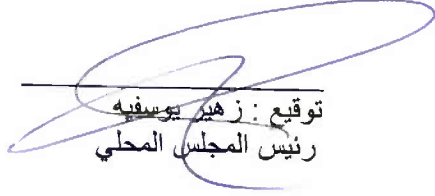 توقيع : زهير يوسفيه
رئيس المجلس المحلي